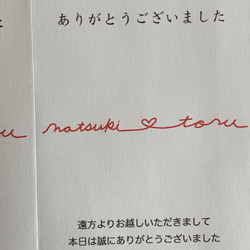 ありがとうございました
natsuki♡toru
遠方よりお越しいただきまして
本日は誠にありがとうございました